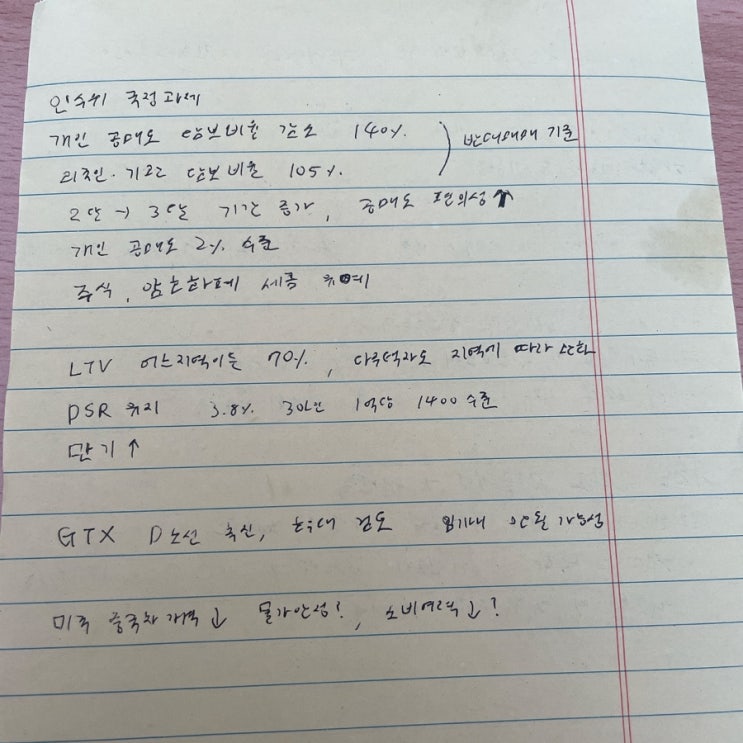 인수위 국정과제
개인 공매도 담보비율 감소 140%
외국인·기관 담보비율 105%. ) 반대매매 기준
2달 → 3달 기간 증가, 공매도 편의성 ↑
개인 공매도 2% 수준
주식, 암호화폐 세금 유예
LTV 어느지역이든 70%, 다주택자도 지역에 따라 완화
DSR 유지 3.8% 30년 1억당 1400 수준
단기 ↑
GTX D노선 추신, 확대 검토 임기내 안될 가능성
미국 중국차 ↓ 물가안정?, 소비여력 ↓?